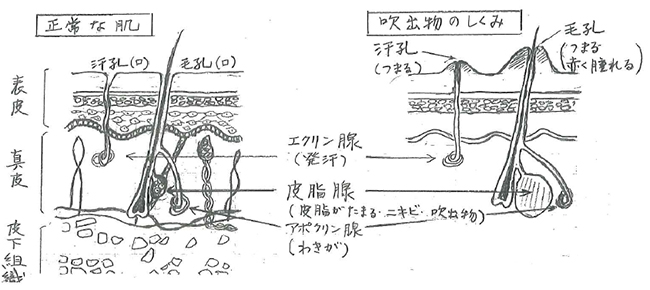 正常な肌
吹出物のしくみ
汗孔(口)
毛孔(口)
汗孔
(つまる)
毛孔
(つまる
赤く腫れる)
表皮
真皮
皮下組織
エクリン腺
(発汗)
皮脂腺
(皮脂がたまる・ニキビ・吹出物)
アポクリン腺
(わきが)